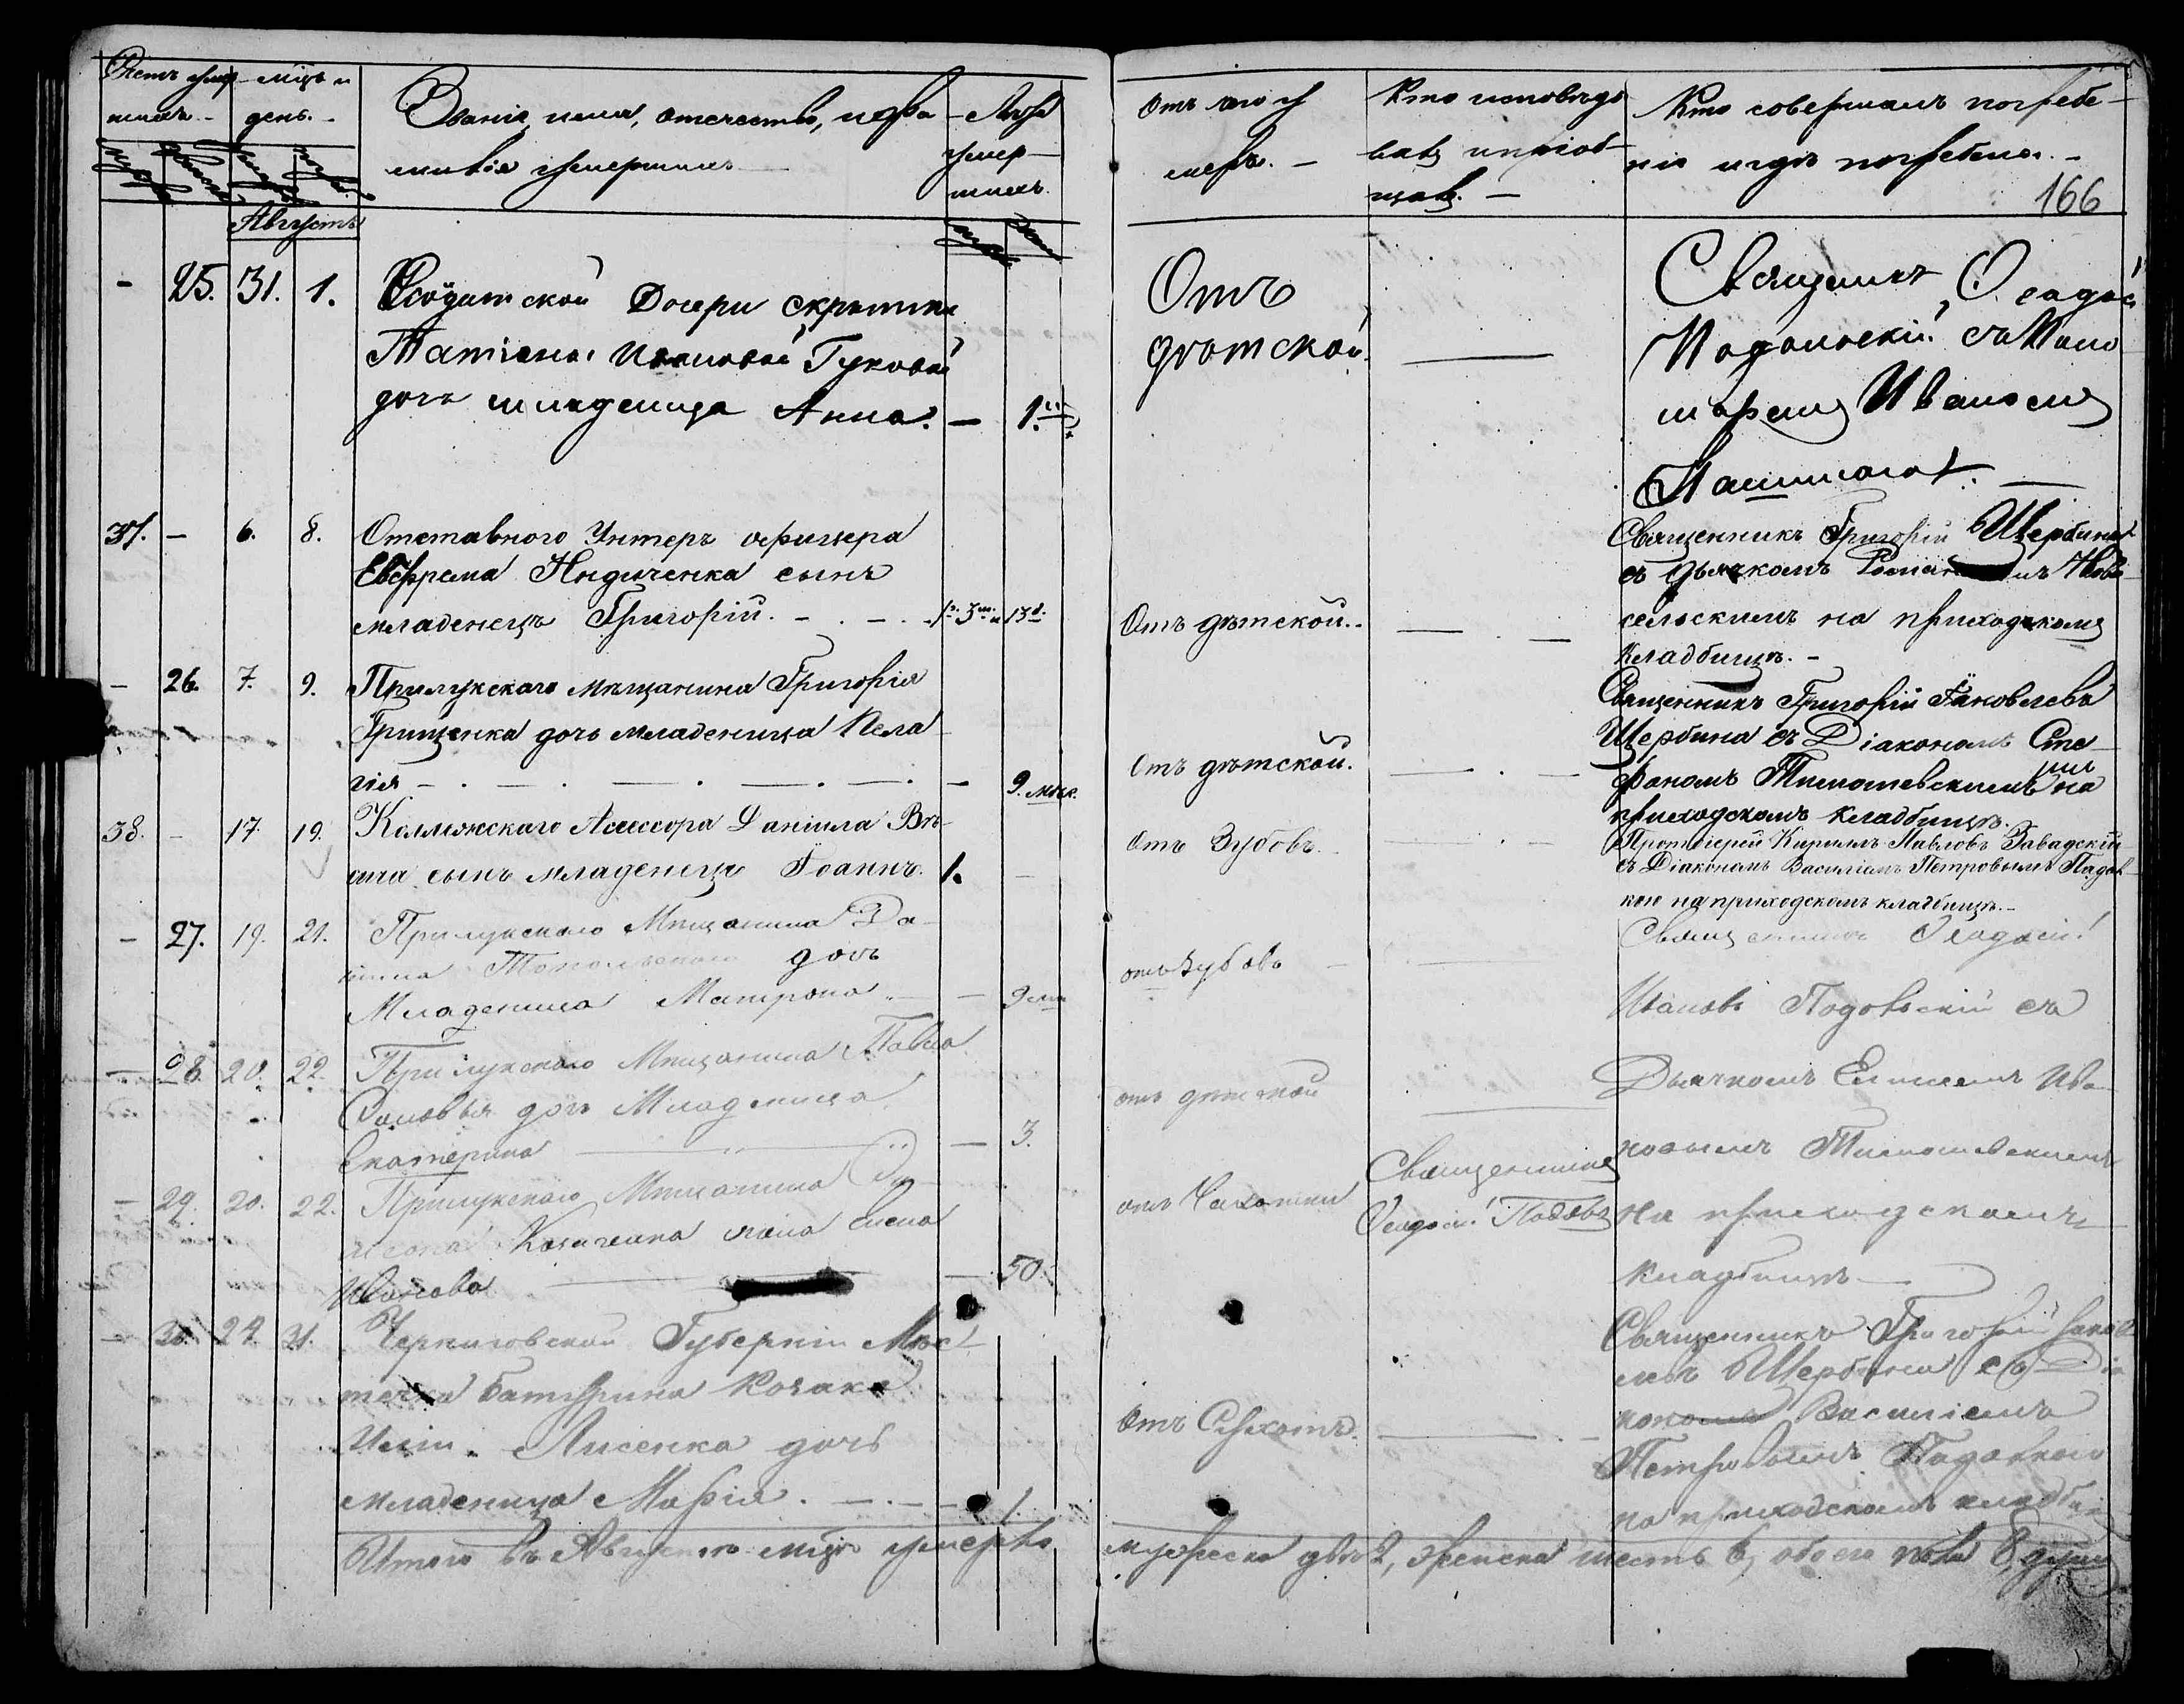 Счетъ умер-
шихъ.
мѣць и
день.
Званіе, имя, отечество, и фа-
милія умершихъ
Лѣта
умер-
шихъ.
Отъ чего у
меръ.
Кто исповѣдо
валъ и пріоб-
щалъ.
Кто совершалъ погребе-
ніе и гдѣ погребены.
166
Августъ
- 25. 31. 1.
Солдатской Дочери скрытки
Татіаны Гуковой
дочь младеница Анна. - 1.
Отъ
дѣтской.
Священникъ Ѳеодосій
Подольскій съ Поно
маремъ Иваномъ
37. - 6. 8.
Отставного Унтеръ офицера
Евфрема Индиченка сынъ
младенецъ Григорій. 13
Отъ дѣтской.
Священникъ Григорій Щербина
съ Дьячкомъ Ново
сельскимъ на приходскомъ
Кладбищѣ.
- 26. 7. 9.
Прилукскаго мѣщанина Григорія
Грищенка дочь младеница Пела
гія - 9. мѣс.
Отъ дѣтской.
Священникъ Григорій Іаковлевъ
Щербина съ Діакономъ Сте
фаномъ Тимошевскимъ на
приходскомъ кладбищѣ.
38. - 17. 19.
Коллежскаго Ассесора Даніила
сынъ младенецъ Іоаннъ. 1. -
Отъ Зубовъ.
Протоіерей Кириллъ Павловъ Завадскій
съ Діакономъ Василіемъ Петровымъ Падал
кою на приходскомъ кладбищѣ.
- 27. 19. 21.
Прилукскаго Мѣщанина Да-
ніила Топольскаго дочь
Младеница Матрона - 9 мѣс
отъ Зубовъ
Священникъ Ѳеодосій
Ивановъ Подольскій съ
Дьячкомъ Ива
новымъ Тимошевскимъ
на приходскомъ
кладбищѣ
- 28. 20. 22.
Прилукскаго Мѣщанина Павла
Соловья дочь Младеница
Екатерина - 3.
отъ дѣтской
- 29. 20. 22.
Прилукскаго Мѣщанина
Козиченка жена
Иванова - 50.
отъ Чахотки
Священникъ
Ѳеодосій Подольс
- 30. 29. 31.
Черниговской Губерніи Мѣс-
течка Батурина Козака
Лисенка дочь
младеница Марія. - 1.
Отъ Сухотъ.
Священникъ Григорій Іаков
левъ Щербина съ Діа
кономъ Василіемъ
Петровымъ Падалкою
на приходскомъ кладби
Итого въ Августѣ мѣцѣ умерло
мужеска два 2, женска шесть 6, обоего пола 8 душъ